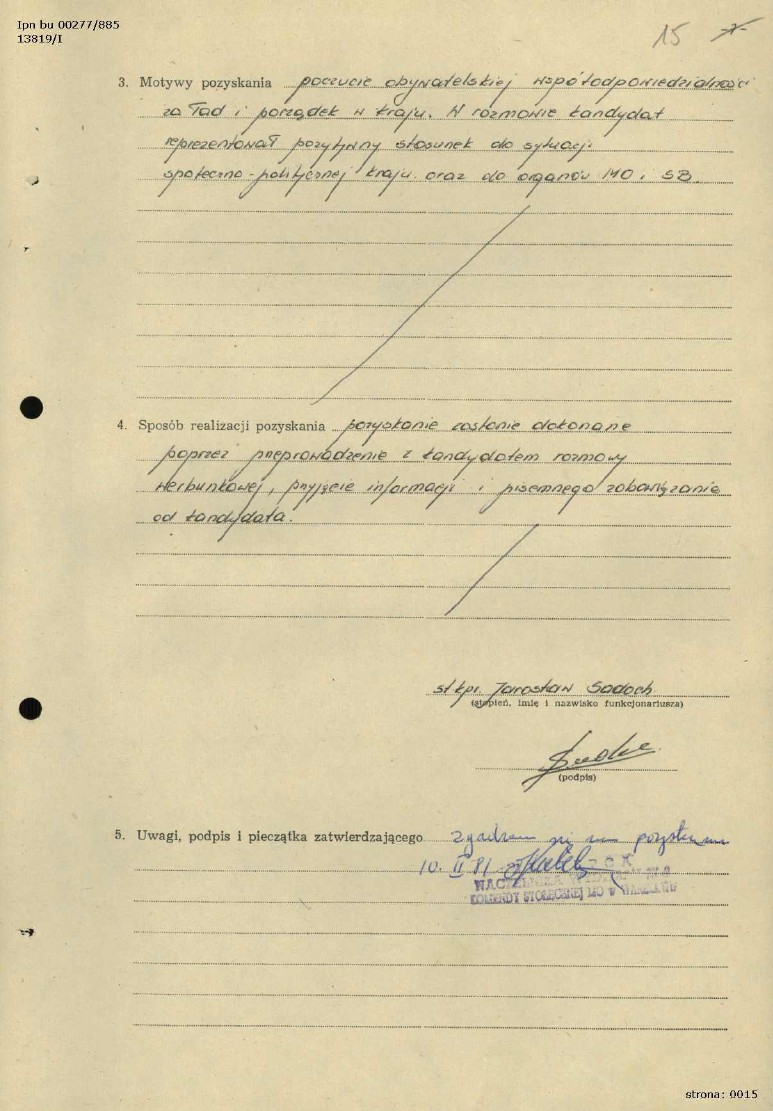 Ipn bu 00277/885
13819/I
15
3. Motywy pozyskania poczucie obywatelskiej współodpowiedzialności
za ład i porządek w kraju. W rozmowie kandydat
reprezentował pozytywny stosunek do sytuacji
społeczno-politycznej kraju oraz do organów MO i SB.
4. Sposób realizacji pozyskania pozyskanie zostanie dokonane
poprzez przeprowadzenie z kandydatem rozmowy
werbunkowej, przyjęcie informacji i pisemnego zobowiązania
od kandydata.
st kpr. Jarosław Sadoch
(stopień, imię i nazwisko funkcjonariusza)
(podpis)
5. Uwagi, podpis i pieczątka zatwierdzającego Zgadzam się na pozyskanie
10. II 81
NACZELNIKA
KOMENDY STOŁECZNEJ MO w WARSZAWIE
strona: 0015